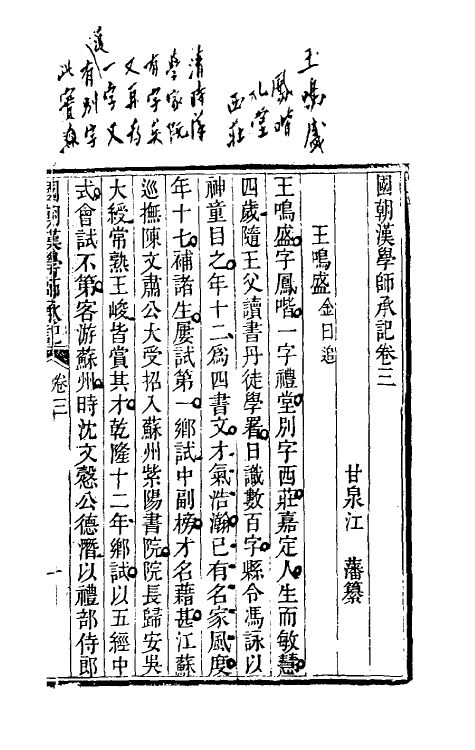 王鳴盛
鳳喈
礼堂
西莊
清時漢
學家既
有字矣
又再有
一字又
還有別字
此實
國朝漢學師承記卷三
甘泉江藩纂
王鳴盛金曰追
王鳴盛字鳳喈一字禮堂別字西莊嘉定人生而敏慧
四歲隨王父讀書丹徒學署日識數百字縣令馮詠以
神童目之年十二爲四書文才氣浩瀚已有名家風度
年十七補諸生屢試第一鄉試中副榜才名藉甚江蘇
巡撫陳文肅公大受招入蘇州紫陽書院院長歸安吳
大綬常熟王峻皆賞其才乾隆十二年鄉試以五經中
式會試不第客游蘇州時沈文愨公德潛以禮部侍郎
國朝漢學師承記
卷三
一